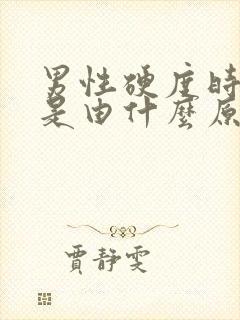 男性硬度時
是由什麼原
賈靜雯